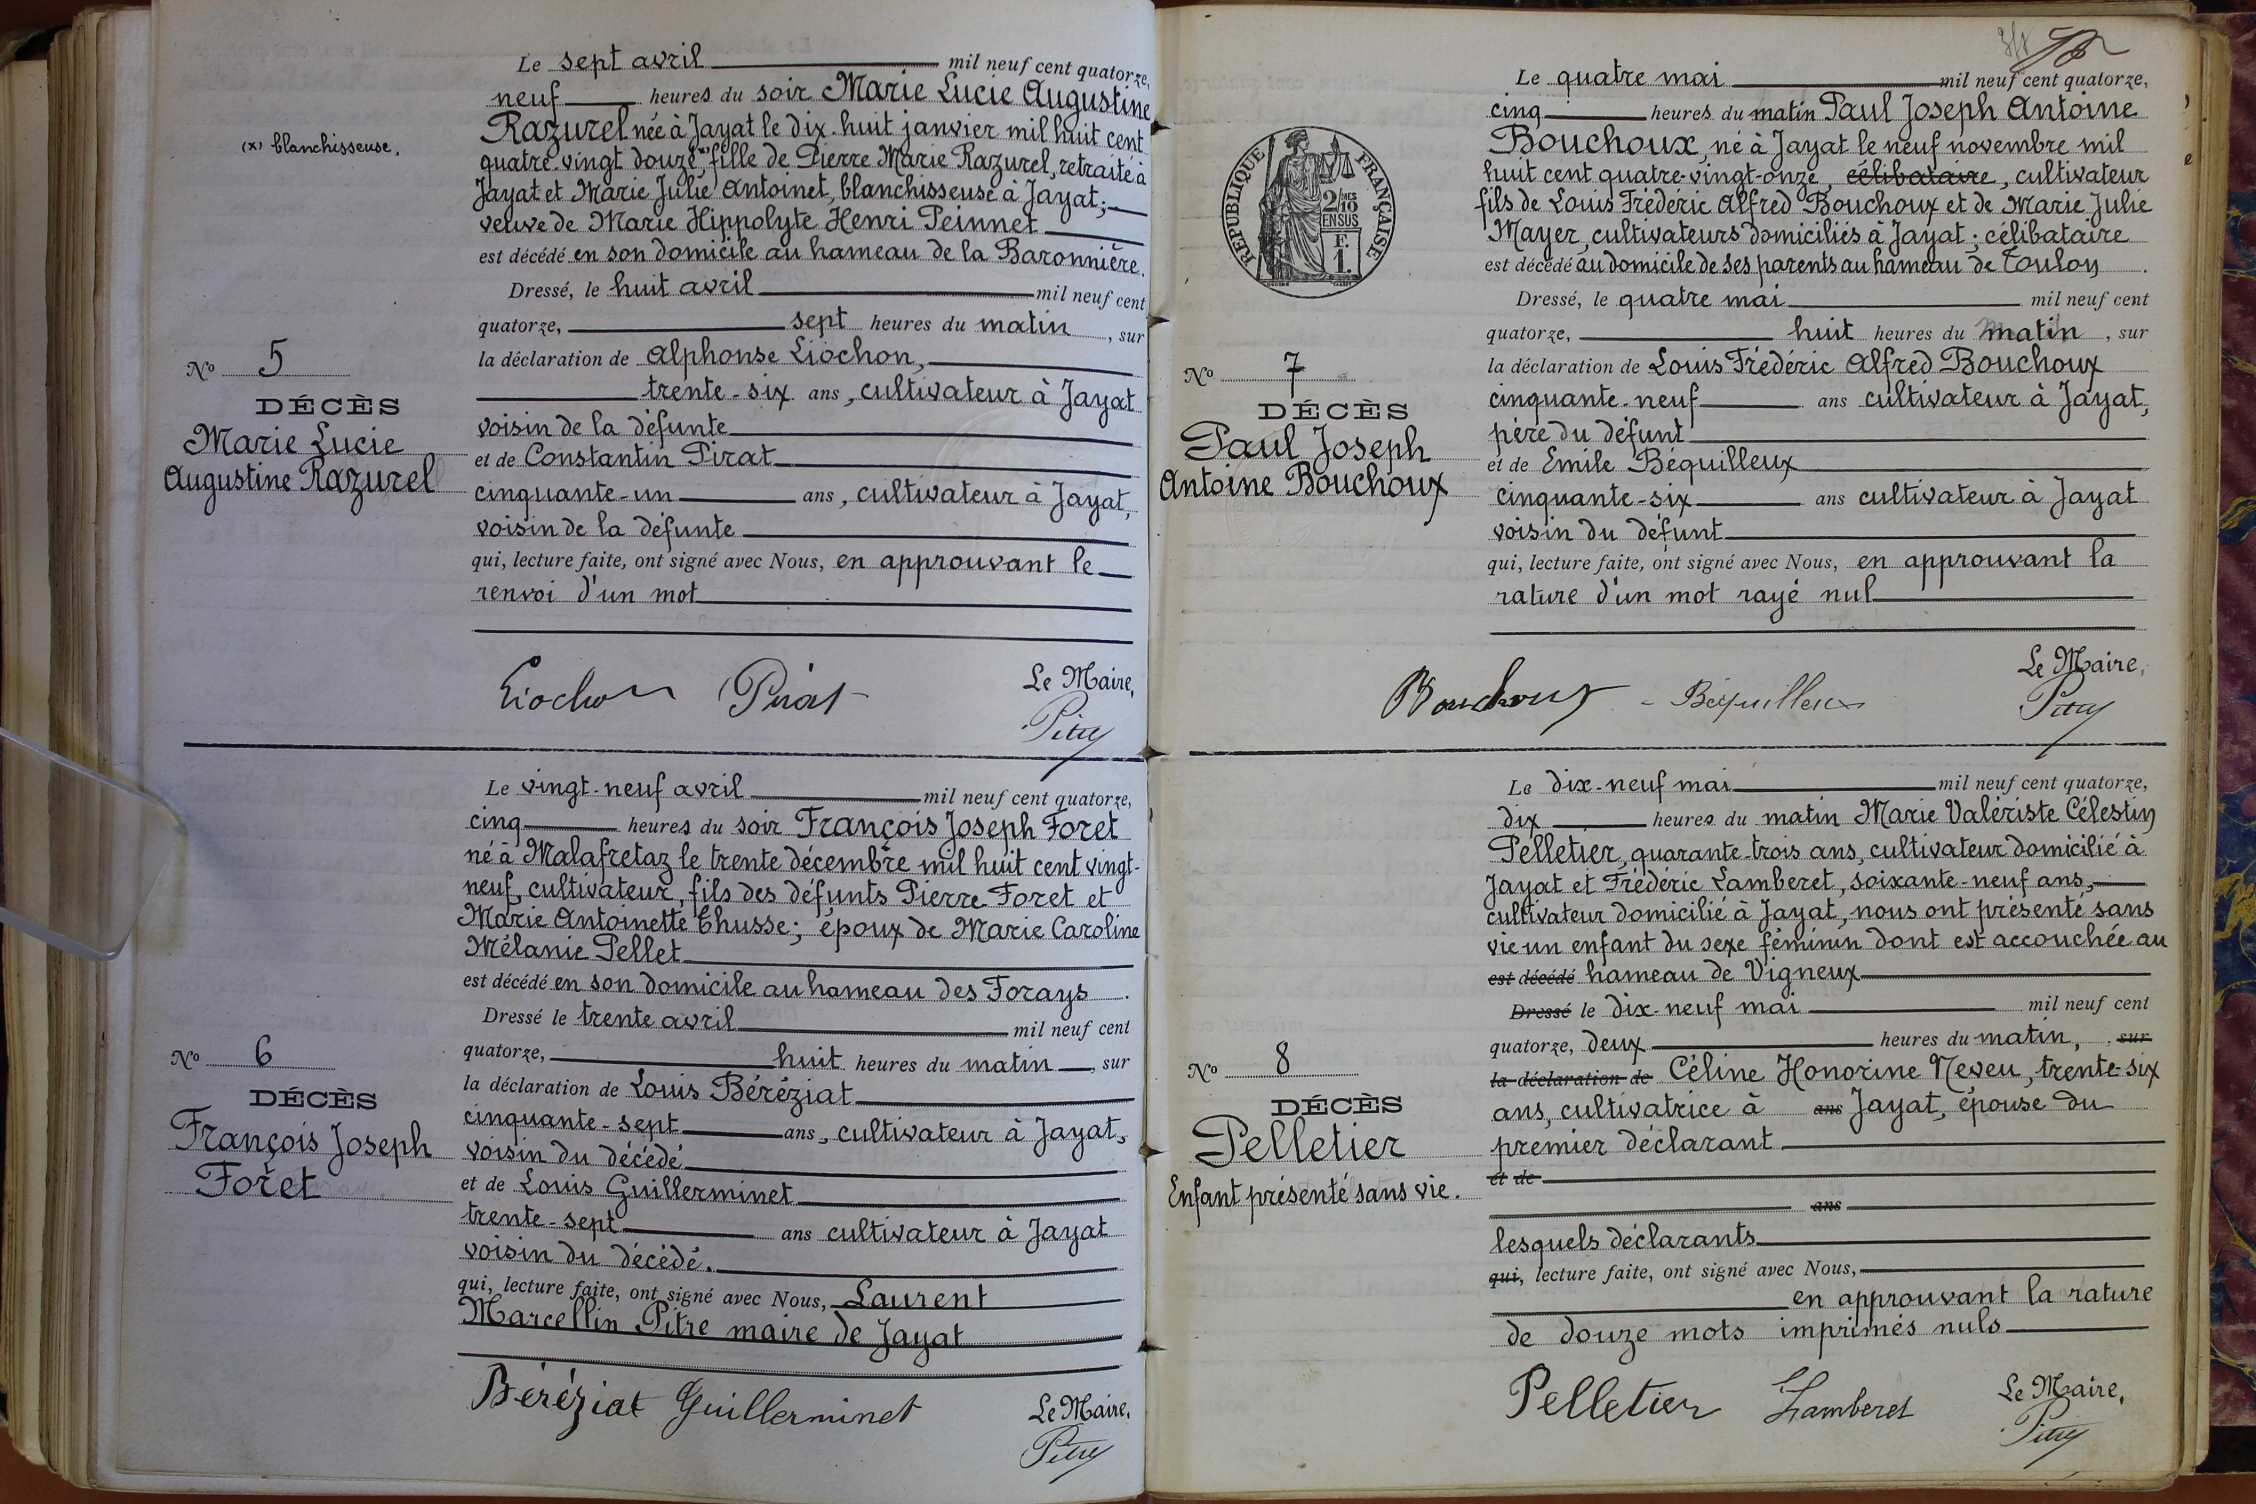 Le sept avril mil neuf cent quatorze,
neuf heures du soir Marie Lucie Augustine
Razurel née à Jayat le dix-huit janvier mil huit cent
(x) blanchisseuse.
quatre-vingt douze,(x) fille de Pierre Marie Razurel, retraité à
Jayat et Marie Julie Antoinet, blanchisseuse à Jayat;
veuve de Marie Hippolyte Henri Peinnet
est décédé en son domicile au hameau de la Baronnière.
Dressé, le huit avril mil neuf cent
quatorze, sept heures du matin, sur
la déclaration de Alphonse Liochon,
trente-six ans, cultivateur à Jayat
voisin de la défunte
et de Constantin Pirat
cinquante-un ans, cultivateur à Jayat,
voisin de la défunte
qui, lecture faite, ont signé avec Nous, en approuvant le
renvoi d'un mot
No 5
DÉCÈS
Marie Lucie
Augustine Razurel
Liochon Pirat
Le Maire,
Pitre
Le vingt-neuf avril mil neuf cent quatorze,
cinq heures du soir François Joseph Foret
né à Malafretaz le trente décembre mil huit cent vingt-
neuf, cultivateur, fils des défunts Pierre Foret et
Marie Antoinette Chusse; époux de Marie Caroline
Mélanie Pellet
est décédé en son domicile au hameau des Forays.
Dressé le trente avril mil neuf cent
quatorze, huit heures du matin, sur
la déclaration de Louis Béréziat
cinquante-sept ans, cultivateur à Jayat,
voisin du décédé
et de Louis Guillerminet
trente-sept ans cultivateur à Jayat
voisin du décédé.
qui, lecture faite, ont signé avec Nous, Laurent
Marcellin Pitre maire de Jayat
No 6
DÉCÈS
François Joseph
Foret
Béréziat Guillerminet
Le Maire,
Pitre
Le quatre mai mil neuf cent quatorze,
cinq heures du matin Paul Joseph Antoine
Bouchoux, né à Jayat le neuf novembre mil
huit cent quatre-vingt-onze, célibataire, cultivateur
fils de Louis Frédéric Alfred Bouchoux et de Marie Julie
Mayer, cultivateurs domiciliés à Jayat; célibataire
est décédé au domicile de ses parents au hameau de Toulon.
Dressé, le quatre mai mil neuf cent
quatorze, huit heures du matin, sur
la déclaration de Louis Frédéric Alfred Bouchoux
cinquante-neuf ans cultivateur à Jayat,
père du défunt
et de Emile Béquilleux
cinquante-six ans cultivateur à Jayat
voisin du défunt
qui, lecture faite, ont signé avec Nous, en approuvant la
rature d'un mot rayé nul
RÉPUBLIQUE FRANÇAISE
2/10MES
EN SUS
F.
1.
No 7
DÉCÈS
Paul Joseph
Antoine Bouchoux
Bouchoux Béquilleux
Le Maire,
Pitre
Le dix-neuf mai mil neuf cent quatorze,
dix heures du matin Marie Valériste Célestin
Pelletier, quarante-trois ans, cultivateur domicilié à
Jayat et Frédéric Lamberet, soixante-neuf ans,
cultivateur domicilié à Jayat, nous ont présenté sans
vie un enfant du sexe féminin dont est accouchée au
est décédé hameau de Vigneux
Dressé le dix-neuf mai mil neuf cent
quatorze, deux heures du matin, sur
la déclaration de Céline Honorine Neveu, trente-six
ans, cultivatrice à ans Jayat, épouse du
premier déclarant
et de
ans
lesquels déclarants
qui, lecture faite, ont signé avec Nous,
en approuvant la rature
de douze mots imprimés nuls
No 8
DÉCÈS
Pelletier
Enfant présenté sans vie.
Pelletier Lamberet
Le Maire,
Pitre